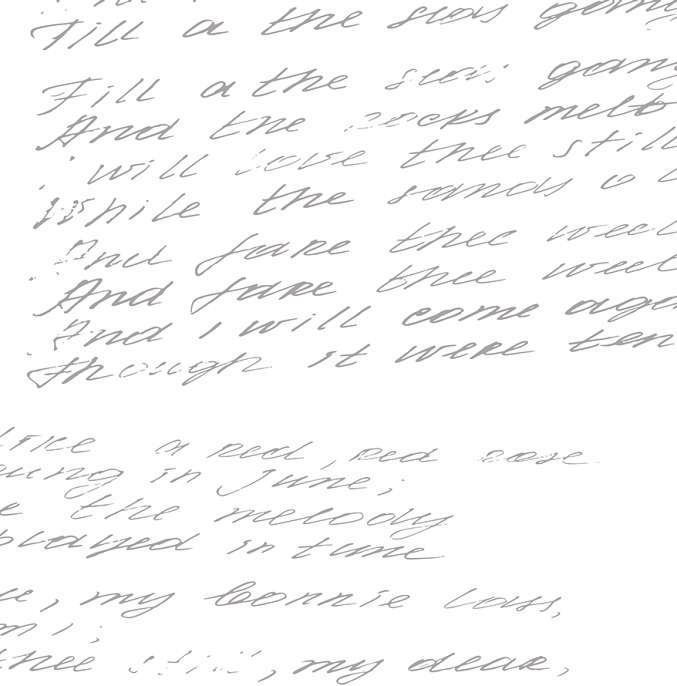 Till a the seas gang
Till a the seas gang
And the rocks melt
i will love thee still
While the sands o l
And fare thee weel
And fare thee weel
And i will come aga
Though it were ten
like a red, red rose
ung in June;
e the melody
played in tune
, my bonnie lass,
m i;
thee still, my dear,